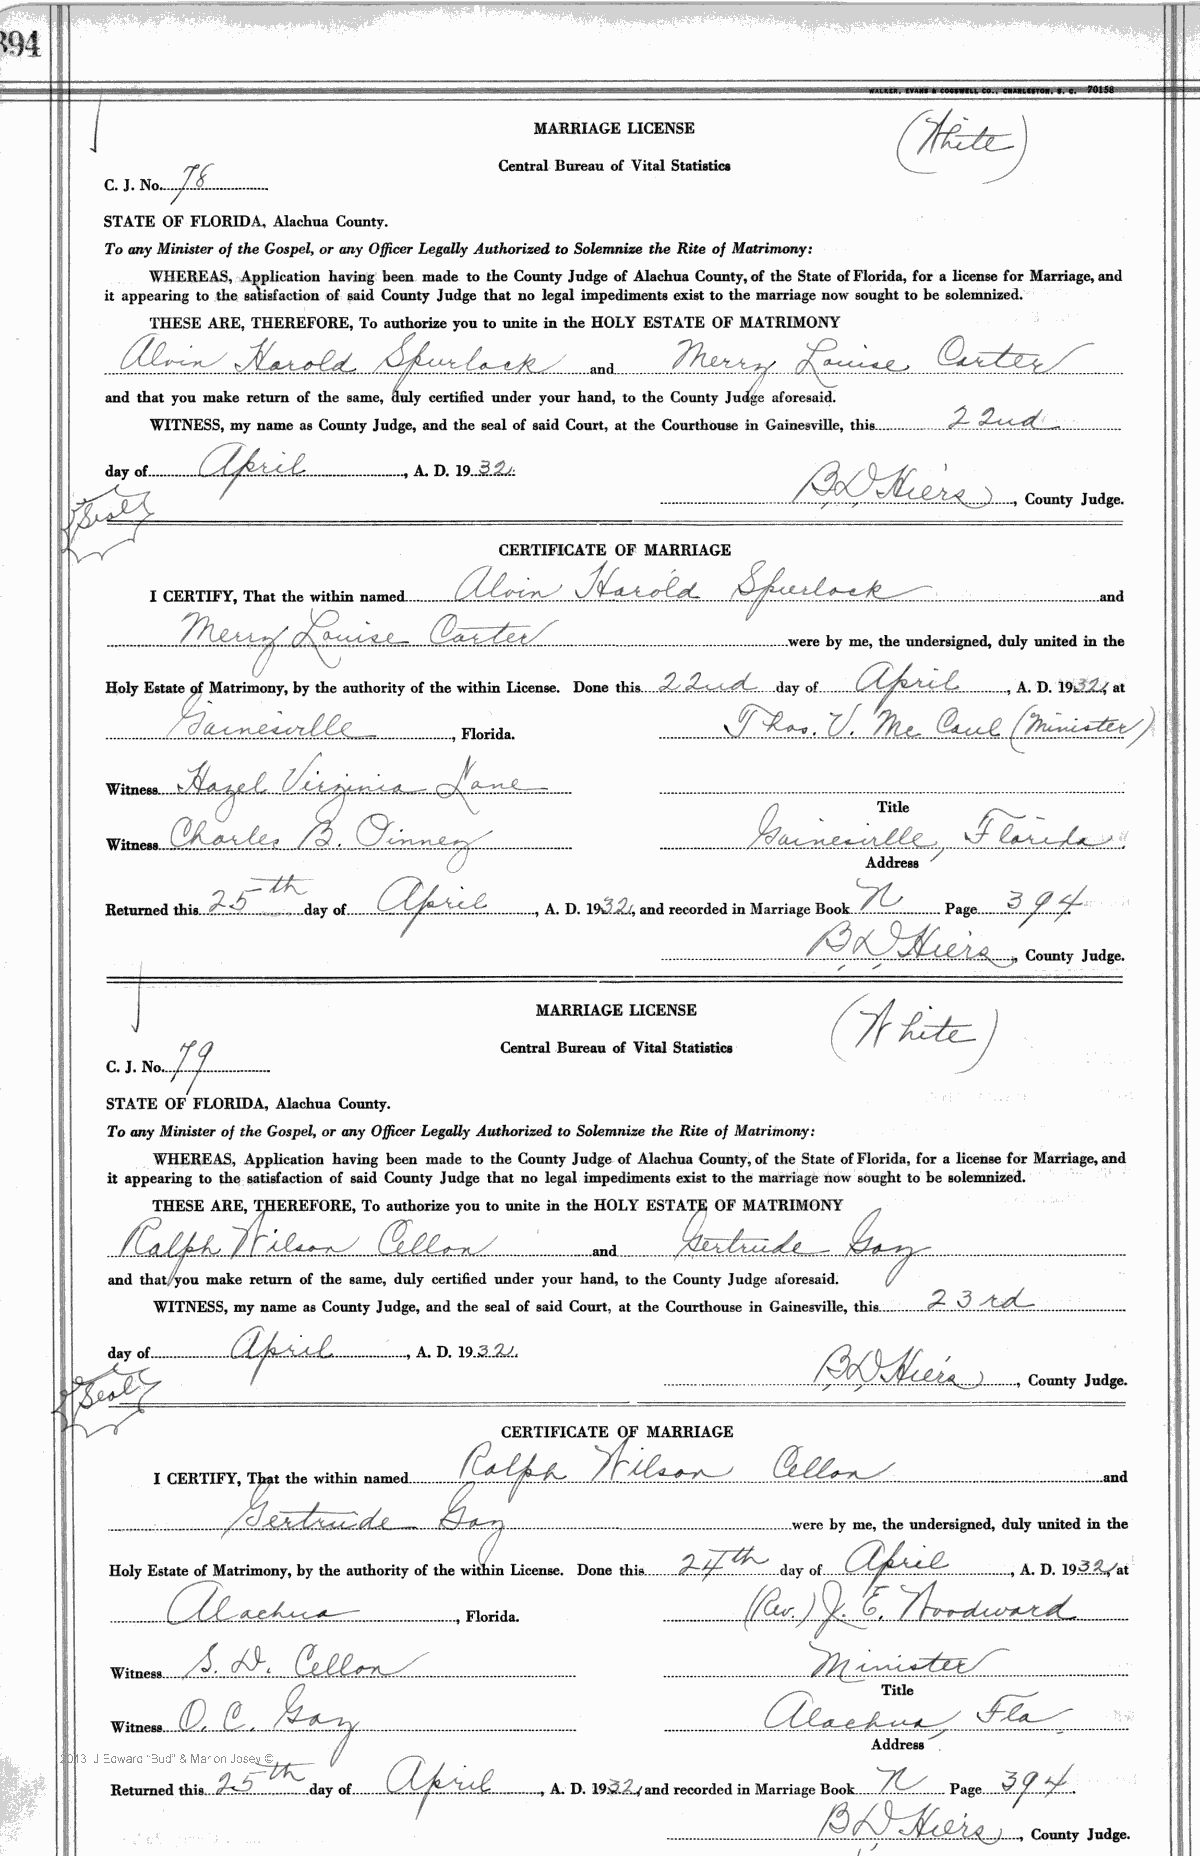 394
WALKER, EVANS & COGSWELL CO., CHARLESTON, S. C. 70158
MARRIAGE LICENSE
(White)
Central Bureau of Vital Statistics
C. J. No. 78
STATE OF FLORIDA, Alachua County.
To any Minister of the Gospel, or any Officer Legally Authorized to Solemnize the Rite of Matrimony:
WHEREAS, Application having been made to the County Judge of Alachua County, of the State of Florida, for a license for Marriage, and
it appearing to the satisfaction of said County Judge that no legal impediments exist to the marriage now sought to be solemnized.
THESE ARE, THEREFORE, To authorize you to unite in the HOLY ESTATE OF MATRIMONY
Alvin Harold Spurlock and Merry Louise Carter
and that you make return of the same, duly certified under your hand, to the County Judge aforesaid.
WITNESS, my name as County Judge, and the seal of said Court, at the Courthouse in Gainesville, this 22nd
day of April, A. D. 1932.
B D Hiers, County Judge.
(Seal)
CERTIFICATE OF MARRIAGE
I CERTIFY, That the within named Alvin Harold Spurlock and
Merry Louise Carter were by me, the undersigned, duly united in the
Holy Estate of Matrimony, by the authority of the within License. Done this 22nd day of April, A. D. 1932, at
Gainesville, Florida. Thos. V. McCaul (Minister)
Witness Hazel Virginia Lane
Title
Witness Charles B. Pinney Gainesville, Florida.
Address
Returned this 25th day of April, A. D. 1932, and recorded in Marriage Book N Page 394.
B D Hiers, County Judge.
MARRIAGE LICENSE
(White)
Central Bureau of Vital Statistics
C. J. No. 79
STATE OF FLORIDA, Alachua County.
To any Minister of the Gospel, or any Officer Legally Authorized to Solemnize the Rite of Matrimony:
WHEREAS, Application having been made to the County Judge of Alachua County, of the State of Florida, for a license for Marriage, and
it appearing to the satisfaction of said County Judge that no legal impediments exist to the marriage now sought to be solemnized.
THESE ARE, THEREFORE, To authorize you to unite in the HOLY ESTATE OF MATRIMONY
Ralph Wilson Cellon and Gertrude Gay
and that you make return of the same, duly certified under your hand, to the County Judge aforesaid.
WITNESS, my name as County Judge, and the seal of said Court, at the Courthouse in Gainesville, this 23rd
day of April, A. D. 1932.
B D Hiers, County Judge.
(Seal)
CERTIFICATE OF MARRIAGE
I CERTIFY, That the within named Ralph Wilson Cellon and
Gertrude Gay were by me, the undersigned, duly united in the
Holy Estate of Matrimony, by the authority of the within License. Done this 24th day of April, A. D. 1932, at
Alachua, Florida. (Rev.) J. E. Woodward
Witness S. D. Cellon Minister
Title
Witness O. C. Gay Alachua, Fla.
Address
2013 J Edward "Bud" & Marion Josey ©
Returned this 25th day of April, A. D. 1932, and recorded in Marriage Book N Page 394.
B D Hiers, County Judge.